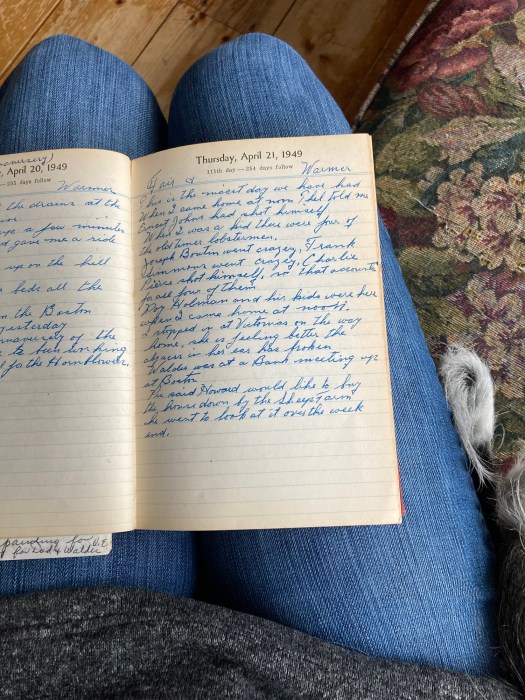 nniversary)
, April 20, 1949
— 255 days follow
Warmer
the drams at the
a few minutes
d gave me a ride
up on the hill
beds all the
n the Boston
yesterday
nniversery of the
to bus
for the Hornblower.
Thursday, April 21, 1949
111th day — 254 days follow
Fair & Warmer
This is the nicest day we have had
When I came home at noon Thel told me
Ernest Johns had shot himself.
When I was a kid there were four of
the old timer lobstermen.
Joseph Boutin went crazey, Frank
Simmons went crazey, Charlie
Pierce shot himself, so that accounts
for all four of them.
Roy Holman and his kids were here
when I came home at noon.
I stopped in at Victorias on the way
home, she is feeling better the
absess in her ear has broken
Waldo was at a Bank meeting up
at Boston
He said Howard would like to buy
the house down by the Sheep Farm
he went to look at it over the week
end.
for
for Dad & Walder